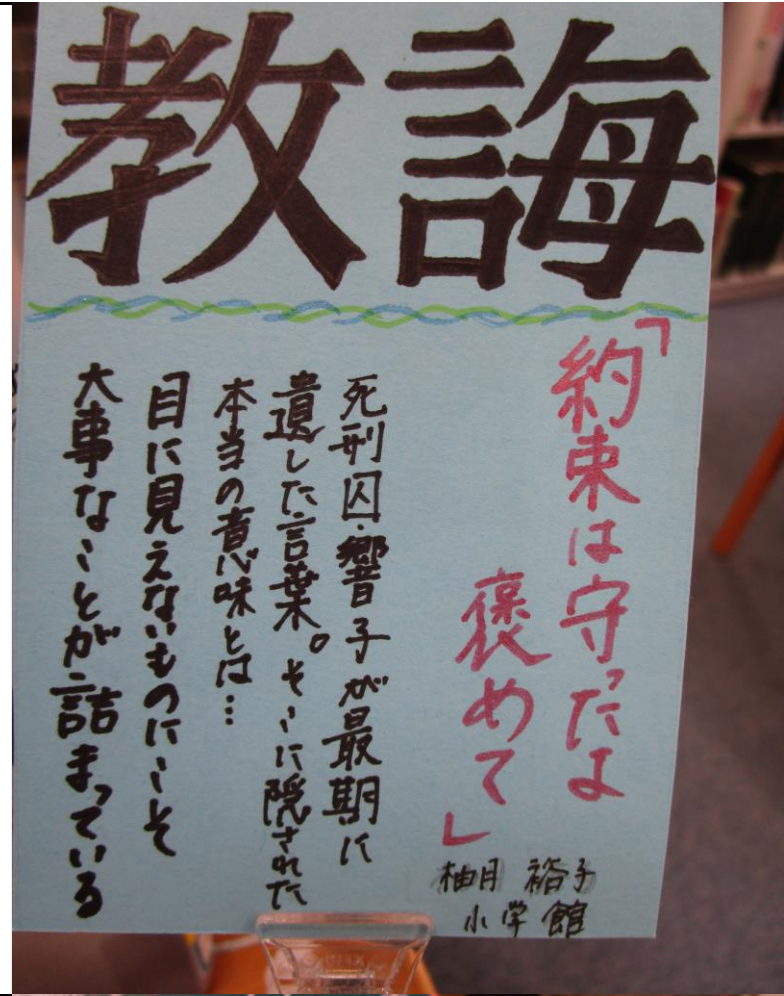 教誨
「約束は守ったよ
褒めて」
柚月 裕子
小学館
死刑囚・響子が最期に
遺した言葉。そこに隠された
本当の意味とは…
目に見えないものにこそ
大事なことが詰まっている